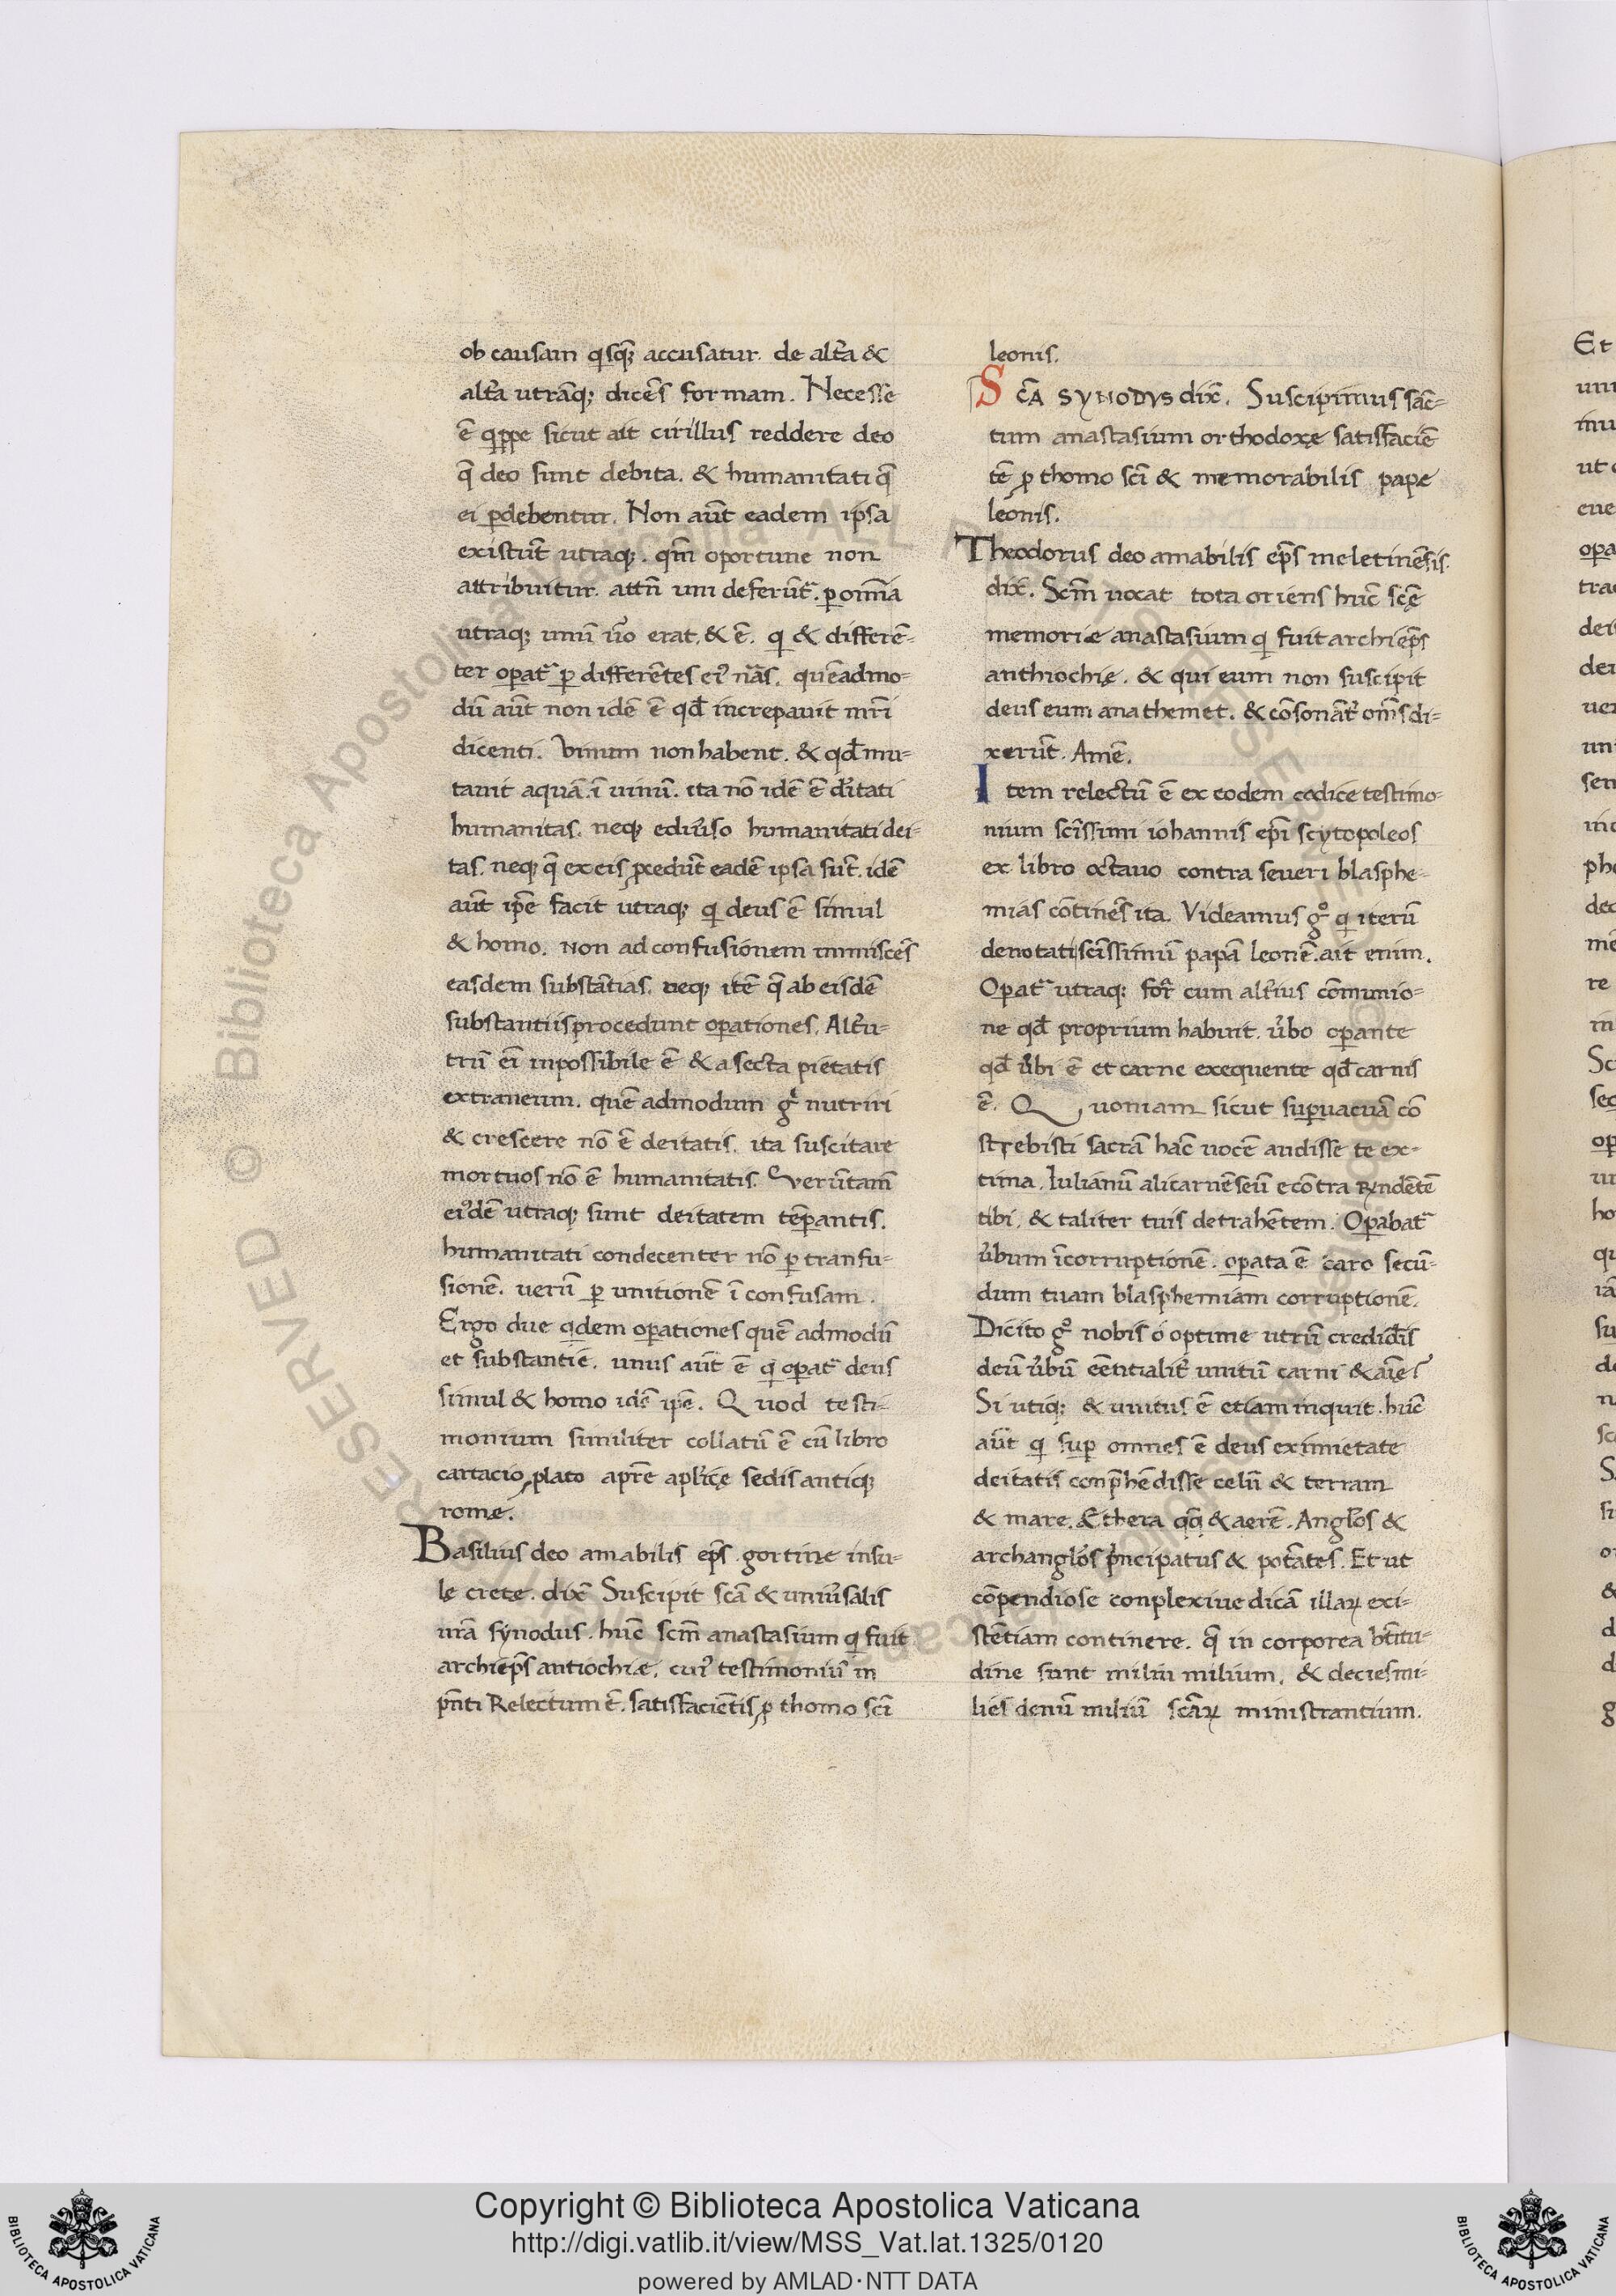 ob causam qisq; accusatur. de altͣa &
altͣa utrāq; dicēs formam. Necesse
ē qippe sicut ait cirillus reddere deo
q̄ deo sunt debita. & humanitati q̄
ei ꝑdebentur. Non aūt eadem ipsa
existūt utraq;. qm̄ oportune non
attribuitur. attn̄ uni deferūtᷣ. ꝑ om̄ia
utraq; unū u̇o erat. & ē. qi & differē-
ter oꝑatᷣ ꝑ differētes eiꝰ nāš. quēadmo-
dū aūt non idē ē qđ increpauit mr̄i
dicenti. Vinum non habent. & qđ mu-
tauit aquā. ī uinū. ita nō idē ē d̓itati
humanitas. neq; ediūso humanitati dei-
tas. neq; q̄ ex eis ꝓcedūt eadē ipsa sūt. idē
aūt ip̄e facit utraq; qi deus ē simul
& homo. Non ad confusionem inmiscēs
easdem substātias. neq; itē q̄ ab eisdē
substantiis procedunt oꝑationes. Alt̓u-
trū ei̅ inpossibile ē & a secta pietatis
extraneum. quē admodum gͥ nutriri
& crescere nō ē deitatis. ita suscitare
mortuos nō ē humanitatis. Verūtam̄
eiꝰdē utraq; sunt deitatem tēꝑantis.
humanitati condecenter nō ꝑ tranfu-
sionē. uerū ꝑ unitionē ī confusam.
Ergo due qidem oꝑationes quē admodū
et substantie. unus aūt ē qi oꝑatᷣ deus
simul & homo idē ip̄e. Quod testi-
monium similiter collatū ē cū libro
cartacio ꝓlato a pr̄e apl̓icę sedis antiq;
rome.
Basilius deo amabilis ep̄s. gortine insu-
lę crete. dix̄ Suscipit scā & uniūsalis
ur̄a synodus. hūc scm̄ anastasium qi fuit
archiep̄s antiochiæ. cuiꝰ testimoniū in
pn̄ti Relectum ē. satisfaciētis ꝓ thomo sc̄i
leonis.
Sc̄A SYNODVS dix̄. Suscipimus sāc-
tum anastasium orthodoxę satisfaciē
tē ꝓ thomo sc̄i & memorabilis pape
leonis.
Theodorus deo amabilis ep̄s meletinēsis.
dix̄. Scm̄ uocat tota oriens hūc sc̄ę
memorie anastasium qi fuit archiep̄s
anthiochię. & qui eum non suscipit
deus eum anathemet. & cōsonāt̓ om̄s di-
xerūt. Amē.
Item relectū ē ex eodem codice testimo-
nium sc̄issimi iohannis ep̄i scytopoleos
ex libro octauo contra seueri blasphe-
mias cōtinēs ita. Videamus gͦ qi iterū
denotati sc̄issimū papā leonē. ait enim.
Oꝑatᷣ utraq; for̄ cum alt̓ius cōmunio-
ne qđ proprium habuit. u̓bo oꝑante
qđ u̓bi ē et carne exequente qđ carnis
ē. Quoniam sicut suꝑuacuā cō
strebisti sacrā hāc uocē audisse te ex-
tima. Iulianū alicarnēseū econtra rn̄dētē
tibi. & taliter tuis detrahētem. Oꝑabatᷣ
u̓bum īcorruptionē. oꝑata ē caro secū-
dum tuam blasphemiam corruptionē.
Dicito gͦ nobis ó optime utrū credid̓is
deū u̓bū eēntialit̓ unitū carni & aīe?
Si utiq; & unitus ē etiam inquit. hūc
aūt qi suꝑ omnes ē deus eximietate
deitatis conp̄hēdisse celū & terram
& mare. Ethera qͦqi & aerē. Angl̓os &
archangl̓os pͥncipatus & potātes. Et ut
cōpendiose conplexiue dicā illaꝝ exi-
stētiam continere. q̄ in corporea bt̄itu-
dine sunt miliū milium. & decies mi-
lies denū miliū sc̄aꝝ ministrantium.
Copyright © Biblioteca Apostolica Vaticana
http://digi.vatlib.it/view/MSS_Vat.lat.1325/0120
powered by AMLAD·NTT DATA